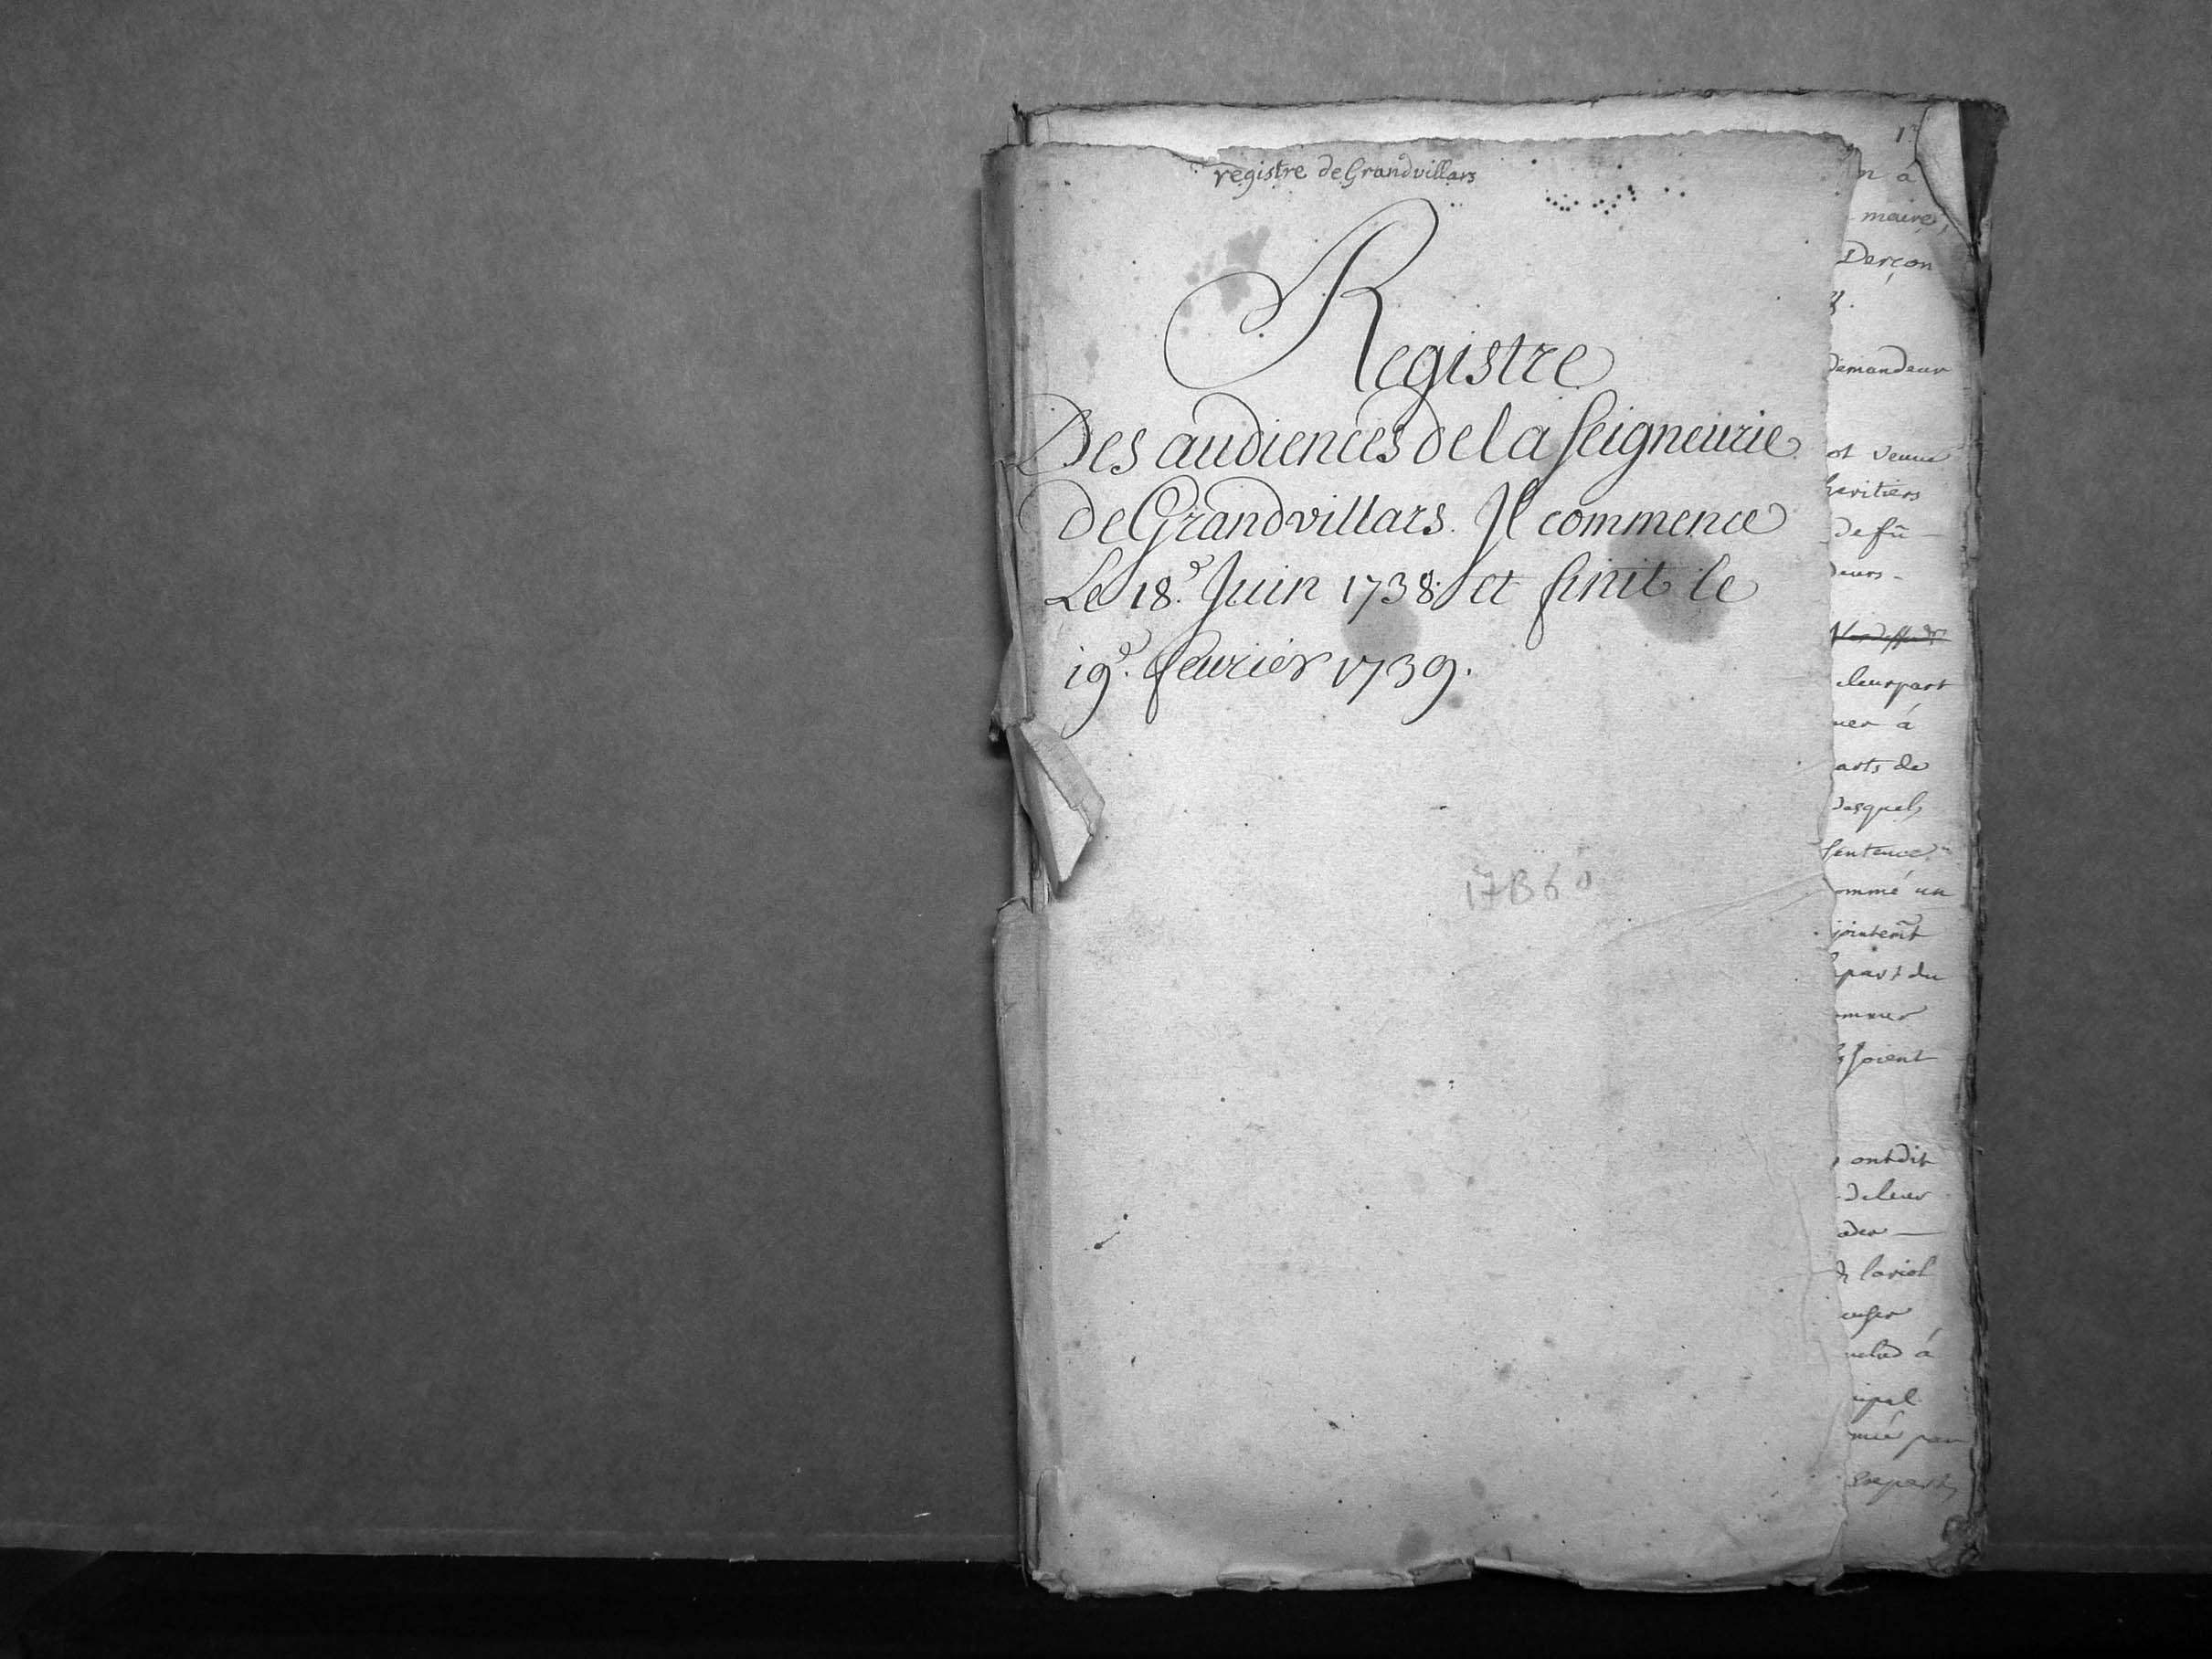 registre de Grandvillars
Registre
Des audiences de la seigneurie
de Grandvillars. Il commence
Le 18.e Juin 1738. et finit le
19.e feurier 1739.
17B60
n à
maire,
Derçon
Demandeur
veuue
heritiers
defũ
leurpart
à
de
lesquels
sentence
ommé un
jointem̃t
part du
soient
ont dit
de leur
à